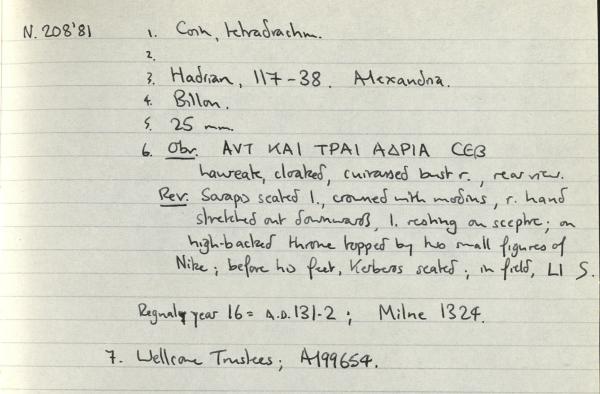 N.208'81 1. Coin, tetradrachm.
2.
3. Hadrian, 117-38. Alexandria.
4. Billon.
5. 25 mm.
6. Obv. ΑΥΤ ΚΑΙ ΤΡΑΙ ΑΔΡΙΑ CЄΒ
laureate, cloaked, cuirassed bust r., rear view.
Rev: Sarapis seated l., crowned with modius, r. hand
stretched out downwards, l. resting on sceptre; on
high-backed throne topped by two small figures of
Nike; before his feet, Kerberos seated; in field, LI S.
Regnal year 16 = A.D. 131-2; Milne 1324.
7. Wellcome Trustees; A199654.